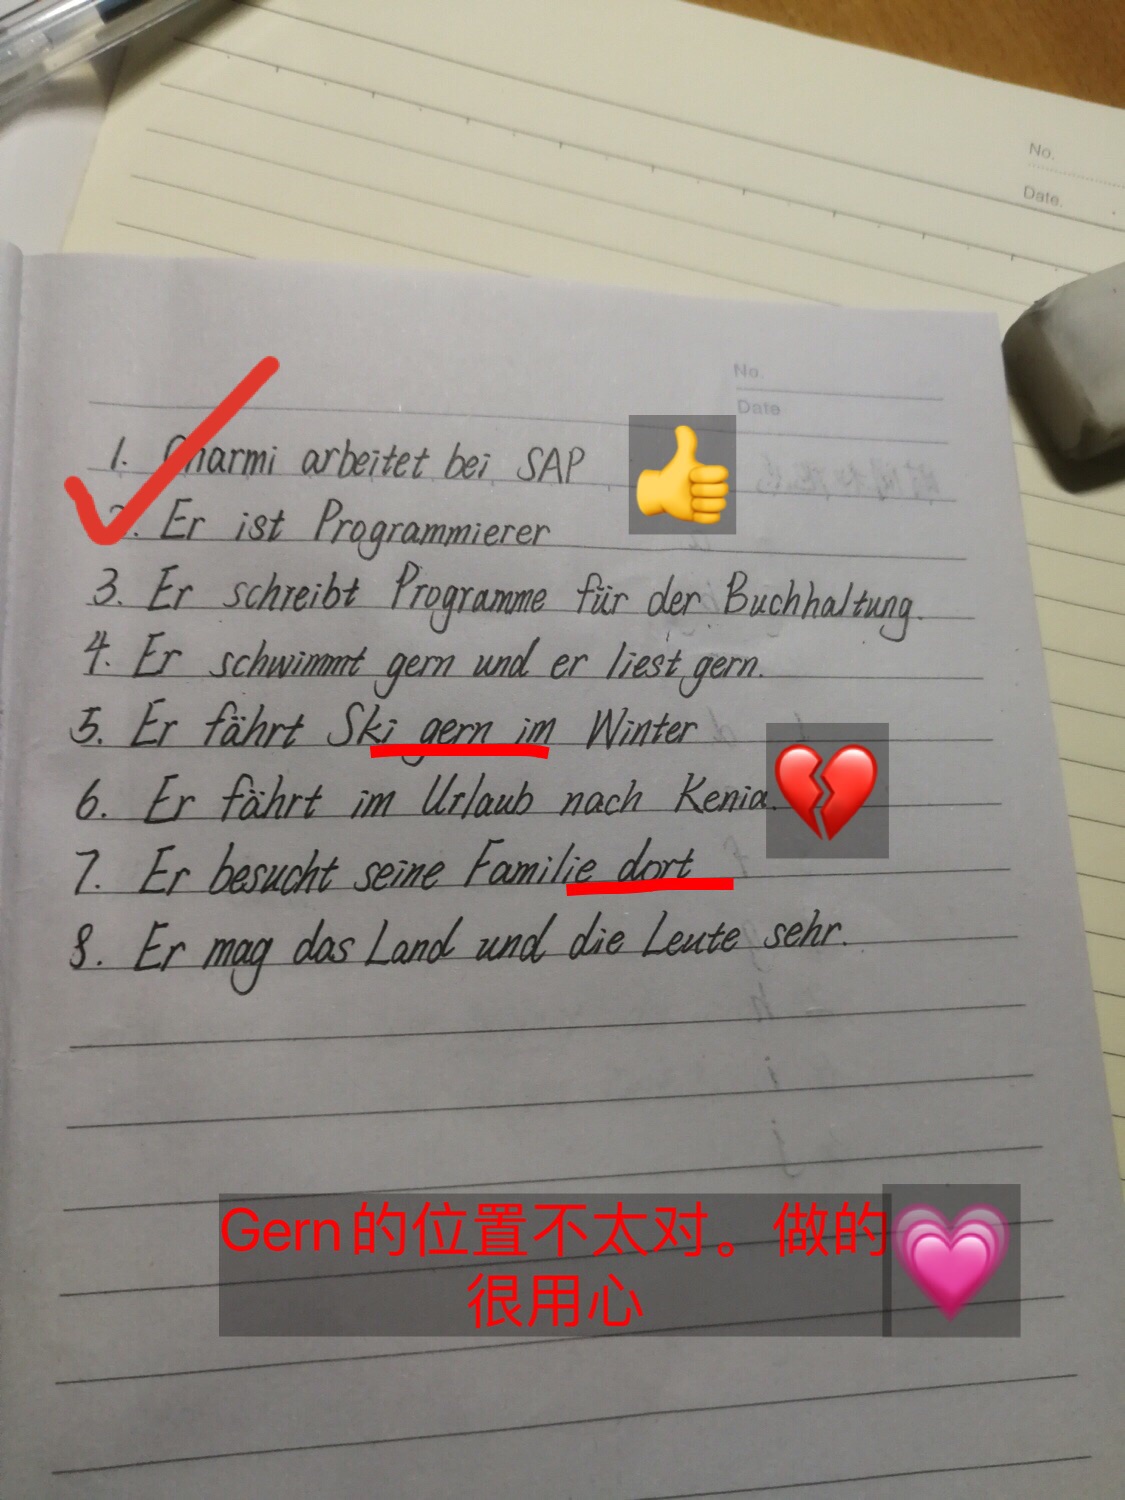 No.
Date.
No.
Date
1. Charmi arbeitet bei SAP
2. Er ist Programmierer
3. Er schreibt Programme für der Buchhaltung.
4. Er schwimmt gern und er liest gern.
5. Er fährt Ski gern im Winter
6. Er fährt im Urlaub nach Kenia.
7. Er besucht seine Familie dort
8. Er mag das Land und die Leute sehr.
Gern的位置不太对。做的
很用心